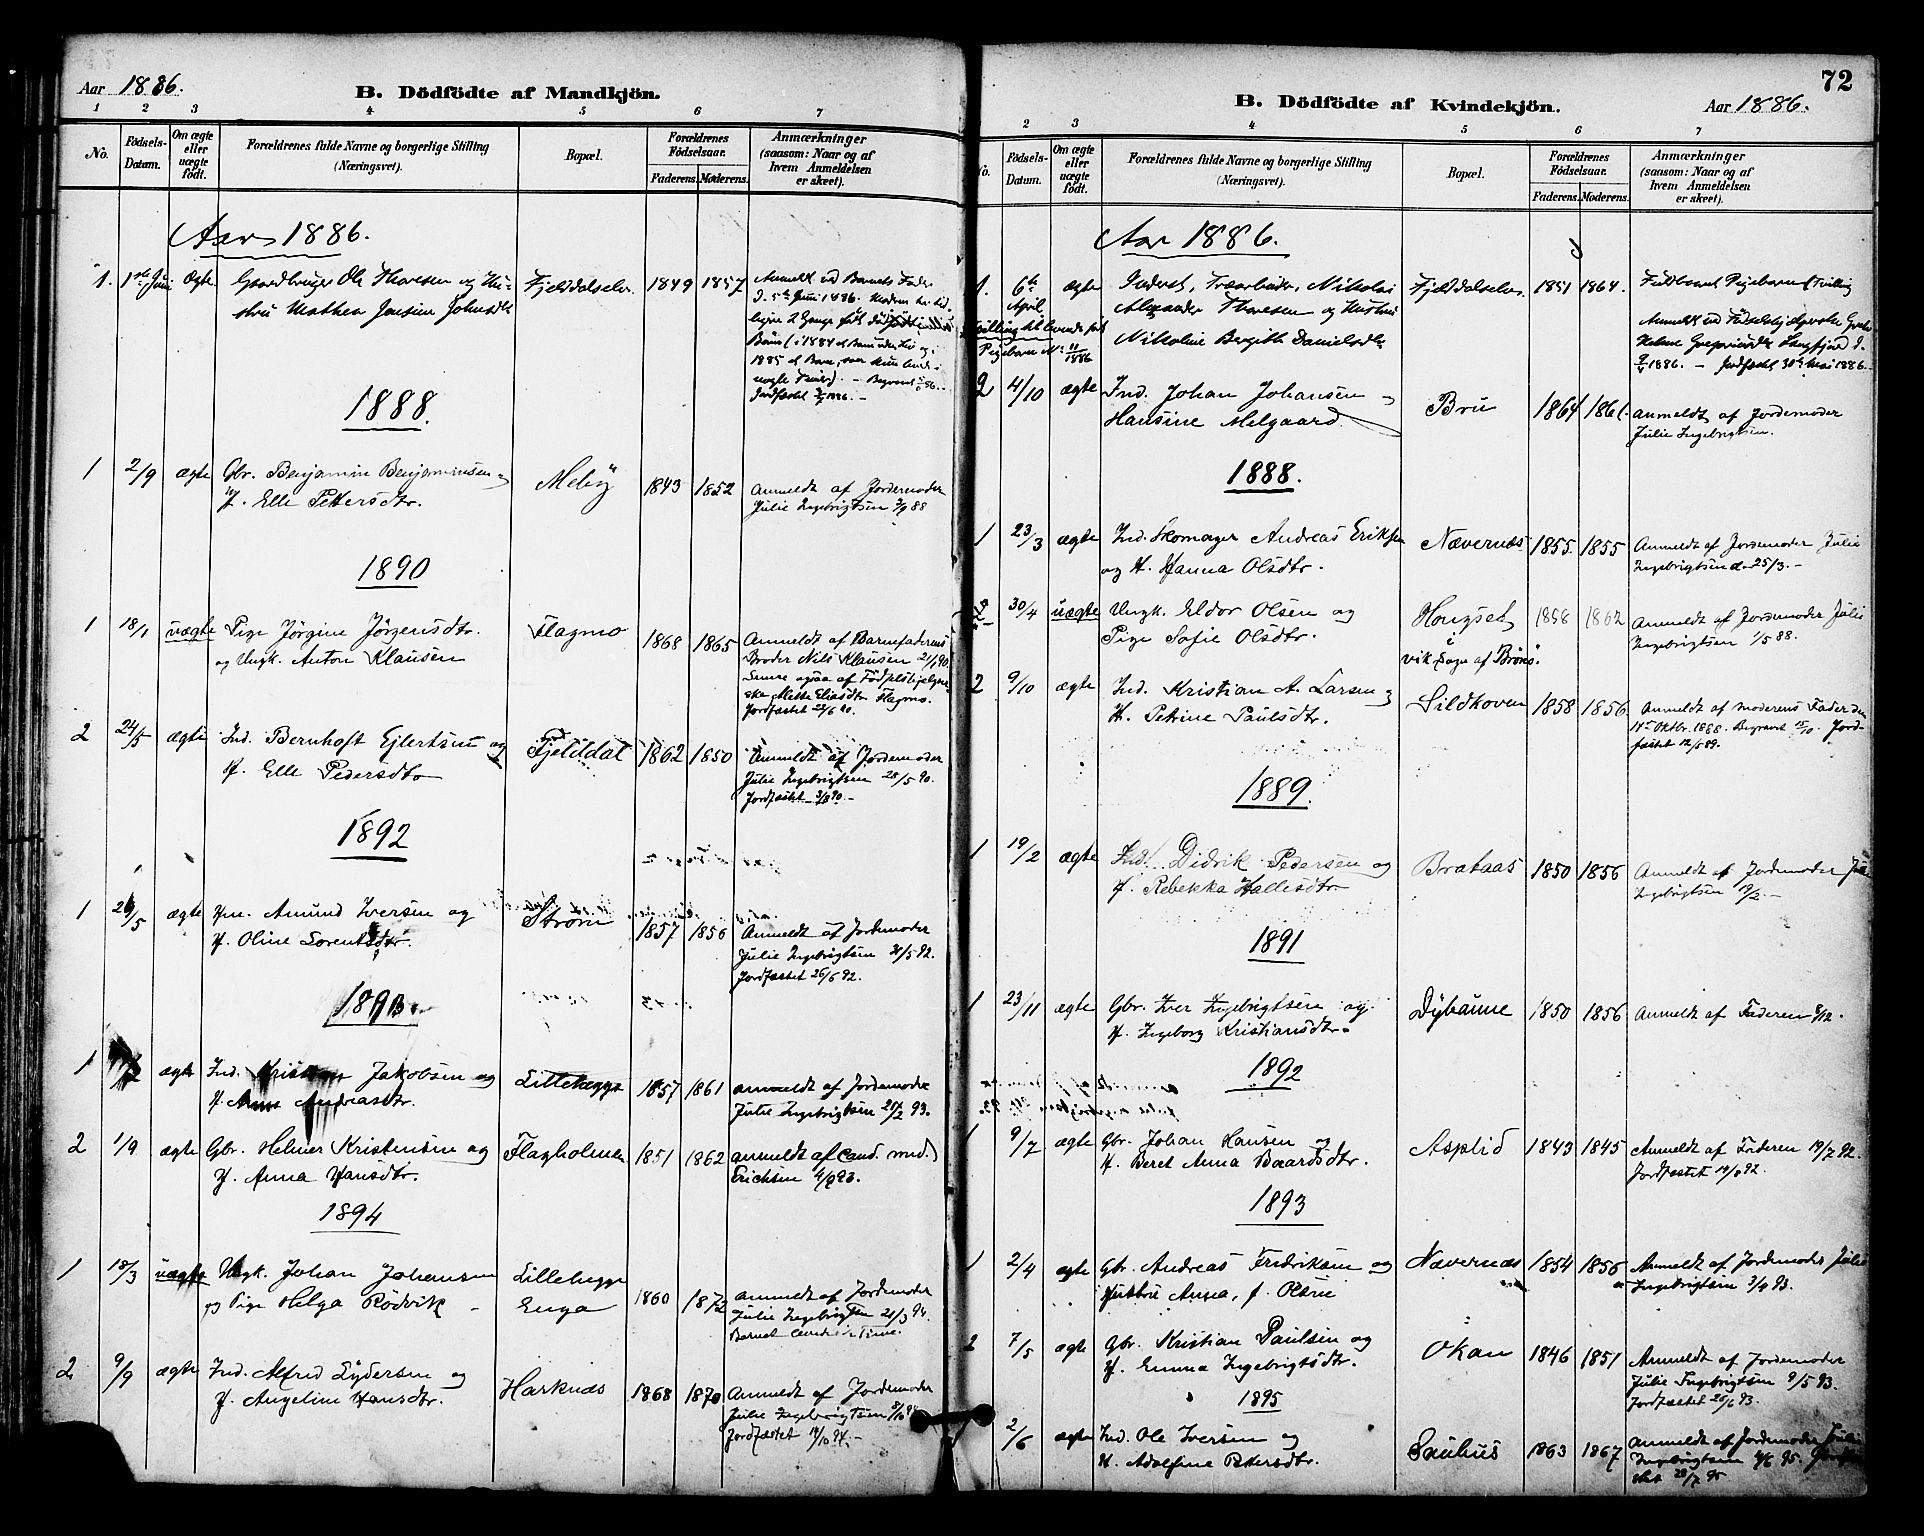 Aar 1886.
B. Dödfödte af Mandkjön.
1 2 3 4 5 6 7
No.
Födsels-Datum.
Om ægte eller uægte födt.
Forældrenes fulde Navne og borgerlige Stilling (Næringsvei).
Bopæl.
Forældrenes Födselsaar.
Faderens. Moderens.
Anmærkninger (saasom: Naar og af hvem Anmeldelsen er skeet).
Aar 1886.
1. 1ste Juni Ægte Gaardbruger Ole Thoresen og Hu- Fjelddalselv. 1849 1857 Anmeldt ved Barnets Fader
stru Mathea Jensine Johnsdtr D. 5te Juni 1886.
1888.
1 2/9 ægte Gbr. Benjamin Benjaminsen Meløy 1843 1852 Anmeldt af Jordemoder
H. Elle Pettersdtr. Julie Ingebrigtsen 3/9 88
1890
1 18/1 uægte Pige Jörgine Jörgensdtr. Flagmo 1868 1865 Anmeldt af Barnefaderens
og Ungk. Anton Klausen Broder Nils Klausen 21/1 90.
Jordfæstet 22/6 90.
2 24/5 ægte Ind. Bernhoft Ejlertsen og Fjelddal 1862 1850 Anmeldt af Jordemoder
H. Elle Pedersdtr Julie Ingebrigtsen 28/5 90.
Jordfæstet
1892
1 26/5 ægte Amund Iversen og Ström 1857 1856 Anmeldt af Jordemoder
H. Oline Lorentsdtr. Julie Ingebrigtsen 31/5 92.
Jordfæstet 26/6 92.
1893.
1 ægte Ind. Kristian Jakobsen og Lillehegge 1857 1861 anmeldt af Jordemoder
H. Anne Andreasdtr. Julie Ingebrigtsen 93.
2 1/9 ægte Gbr. Helmer Kristensen og Flagholmen 1851 1862 anmeldt af Cand. med.
H. Anna Hansdtr. Erichsen 4/9 93.
1894
1 18/3 uægte Ungk. Johan Johansen Lillehegge 1860 1872 anmeldt af Jordemoder
og Pige Helga Rödvik Enga Julie Ingebrigtsen 21/3 94.
2 9/9 ægte Ind. Alfred Lydersen og Harknæs 1868 1870 Anmeldt af Jordemoder
H. Angeline Hansdtr. Julie Ingebrigtsen
Jordfæstet 14/10 94.
72
B. Dödfödte af Kvindekjön.
Aar 1886.
2 3 4 5 6 7
No.
Födsels-Datum.
Om ægte eller uægte födt.
Forældrenes fulde Navne og borgerlige Stilling (Næringsvei).
Bopæl.
Forældrenes Födselsaar.
Faderens. Moderens.
Anmærkninger (saasom: Naar og af hvem Anmeldelsen er skeet).
Aar 1886.
1. 6te April ægte Inderst, Træarbeider, Nikolai Fjelddalselv. 1851 1864. Fuldbaaret Pigebarn (Tvilling
Alexander Thoresen og Hustru
Pigebarn No. 11/1886 Nikoline Bergitte Danielsdtr 1886. – Jordfæstet 30te Mai 1886.
2 4/10 ægte Ind. Johan Johansen Bru 1864 anmeldt af Jordemoder
Hansine Melgaard. Julie Ingebrigtsen.
1888.
1 23/3 ægte Ind. Skomager Andreas Eriksen Nævernæs 1855. 1855 Anmeldt af Jordemoder Julie
og H. Hanna Olsdtr. Ingebrigtsen d. 25/3. –
30/4 uægte Ungk. Eldor Olsen og Hongset 1858 1862 Anmeldt af Jordemoder Julie
Pige Sofie Olsdtr. i Ingebrigtsen 1/5 88.
vik Sogn af Brønö.
2 9/10 ægte Ind. Kristian A. Larsen Sildhoven 1858 1856 Anmeldt af moderens Fader den
H. Petrine Paulsdtr. 14de Oktbr. 1888. Begravet 15/10. Jord-
fæstet 12/5 89.
1889.
1 19/2 ægte Ind. Didrik Pedersen og Brataas 1850 1856 Anmeldt af Jordemoder
H. Rebekka Hallesdtr Ingebrigtsen 19/2 –
1891
1 23/11 ægte Gbr. Iver Ingebrigtsen og Dybaune 1850 1856 Anmeldt af Faderen
H. Ingeborg Kristiansdtr.
1892
1 9/7 ægte Gbr. Johan Hansen og Asplid 1843 1845 Anmeldt af Faderen 19/7 92.
H. Beret Anna Baardsdtr. Jordfæstet
1893
1 2/4 ægte Gbr. Andreas Fredriksen og Nævernæs 1854 1856 Anmeldt af Jordemoder Julie
Hustru Anna, f. Olsen Ingebrigtsen 3/4 93.
2 7/5 ægte Gbr. Kristian Paulsen og Okan 1846 1851 Anmeldt af Jordemoder
H. Emma Ingebrigtsdtr. Julie Ingebrigtsen 9/5 93.
Jordfæstet 25/6 93.
1895
2/6 ægte Ind. Ole Iversen og Sauhus 1863 1867 Anmeldt af Jordemoder Julie
H. Adolfine Pettersdtr. Ingebrigtsen 4/6 95.